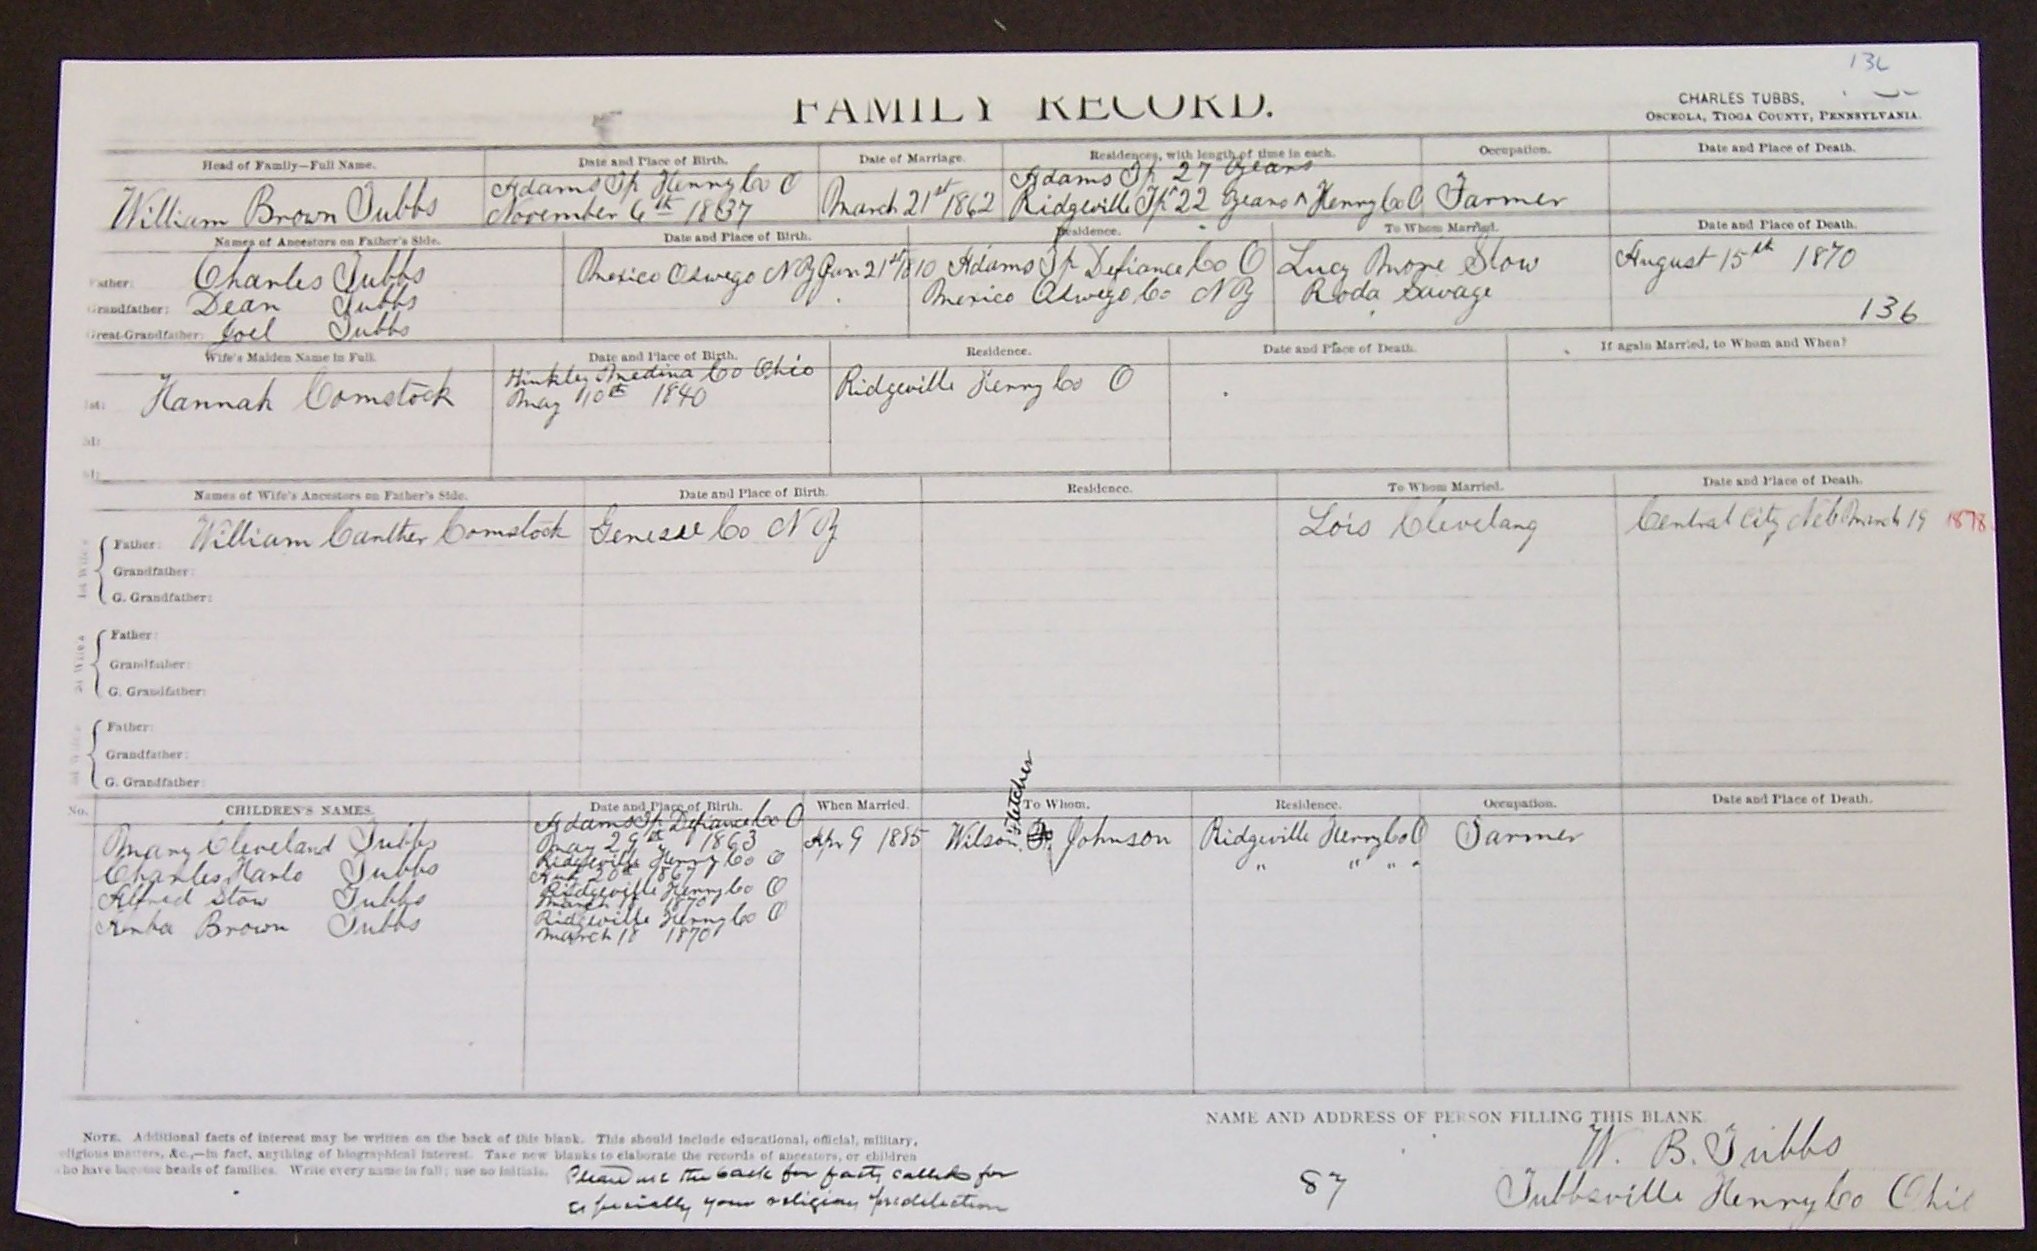 136
FAMILY RECORD.
CHARLES TUBBS,
OSCEOLA, TIOGA COUNTY, PENNSYLVANIA.
Head of Family—Full Name. Date and Place of Birth. Date of Marriage. Residences, with length of time in each. Occupation. Date and Place of Death.
Adams Tp Henry Co O Adams Tp 27 Years
William Brown Tubbs November 6th 1837 March 21st 1862 Ridgeville Tp 22 Years ^ Henry Co O Farmer
Names of Ancestors on Father's Side. Date and Place of Birth. Residence. To Whom Married. Date and Place of Death.
Father: Charles Tubbs Mexico Oswego N Y Jan 21st 1810 Adams Tp Defiance Co O Lucy More Stow August 15th 1870
Grandfather: Dean Tubbs Mexico Oswego Co N Y Roda Savage
136
Great-Grandfather: Joel Tubbs
Wife's Maiden Name in Full. Date and Place of Birth. Residence. Date and Place of Death. If again Married, to Whom and When?
Hinkley Medina Co Ohio
1st: Hannah Comstock May 10th 1840 Ridgeville Henry Co O
2d:
3d:
Names of Wife's Ancestors on Father's Side. Date and Place of Birth. Residence. To Whom Married. Date and Place of Death.
1st Wife's
Father: William Canther Comstock Genesee Co N Y Lois Cleveland Central City Neb March 19 1878
Grandfather:
G. Grandfather:
2d Wife's
Father:
Grandfather:
G. Grandfather:
3d Wife's
Father:
Grandfather:
G. Grandfather:
No. CHILDREN'S NAMES. Date and Place of Birth. When Married. To Whom. Residence. Occupation. Date and Place of Death.
Adams Tp Defiance Co O Fletcher
Mary Cleveland Tubbs May 29th 1863 Apr 9 1885 Wilson Johnson Ridgeville Henry Co O Farmer
Ridgeville Henry Co O
Charles Harlo Tubbs 20th 1867 " " " "
Ridgeville Henry Co O
Alfred Stow Tubbs March 18 1870
Ridgeville Henry Co O
Brown Tubbs March 18 1870
NAME AND ADDRESS OF PERSON FILLING THIS BLANK.
NOTE. Additional facts of interest may be written on the back of this blank. This should include educational, official, military,
religious matters, &c.,—in fact, anything of biographical interest. Take new blanks to elaborate the records of ancestors, or children
who have become heads of families. Write every name in full; use no initials.
Please use the back for facts called for
especially your religious predilection
87
W. B. Tubbs
Tubbsville Henry Co Ohio